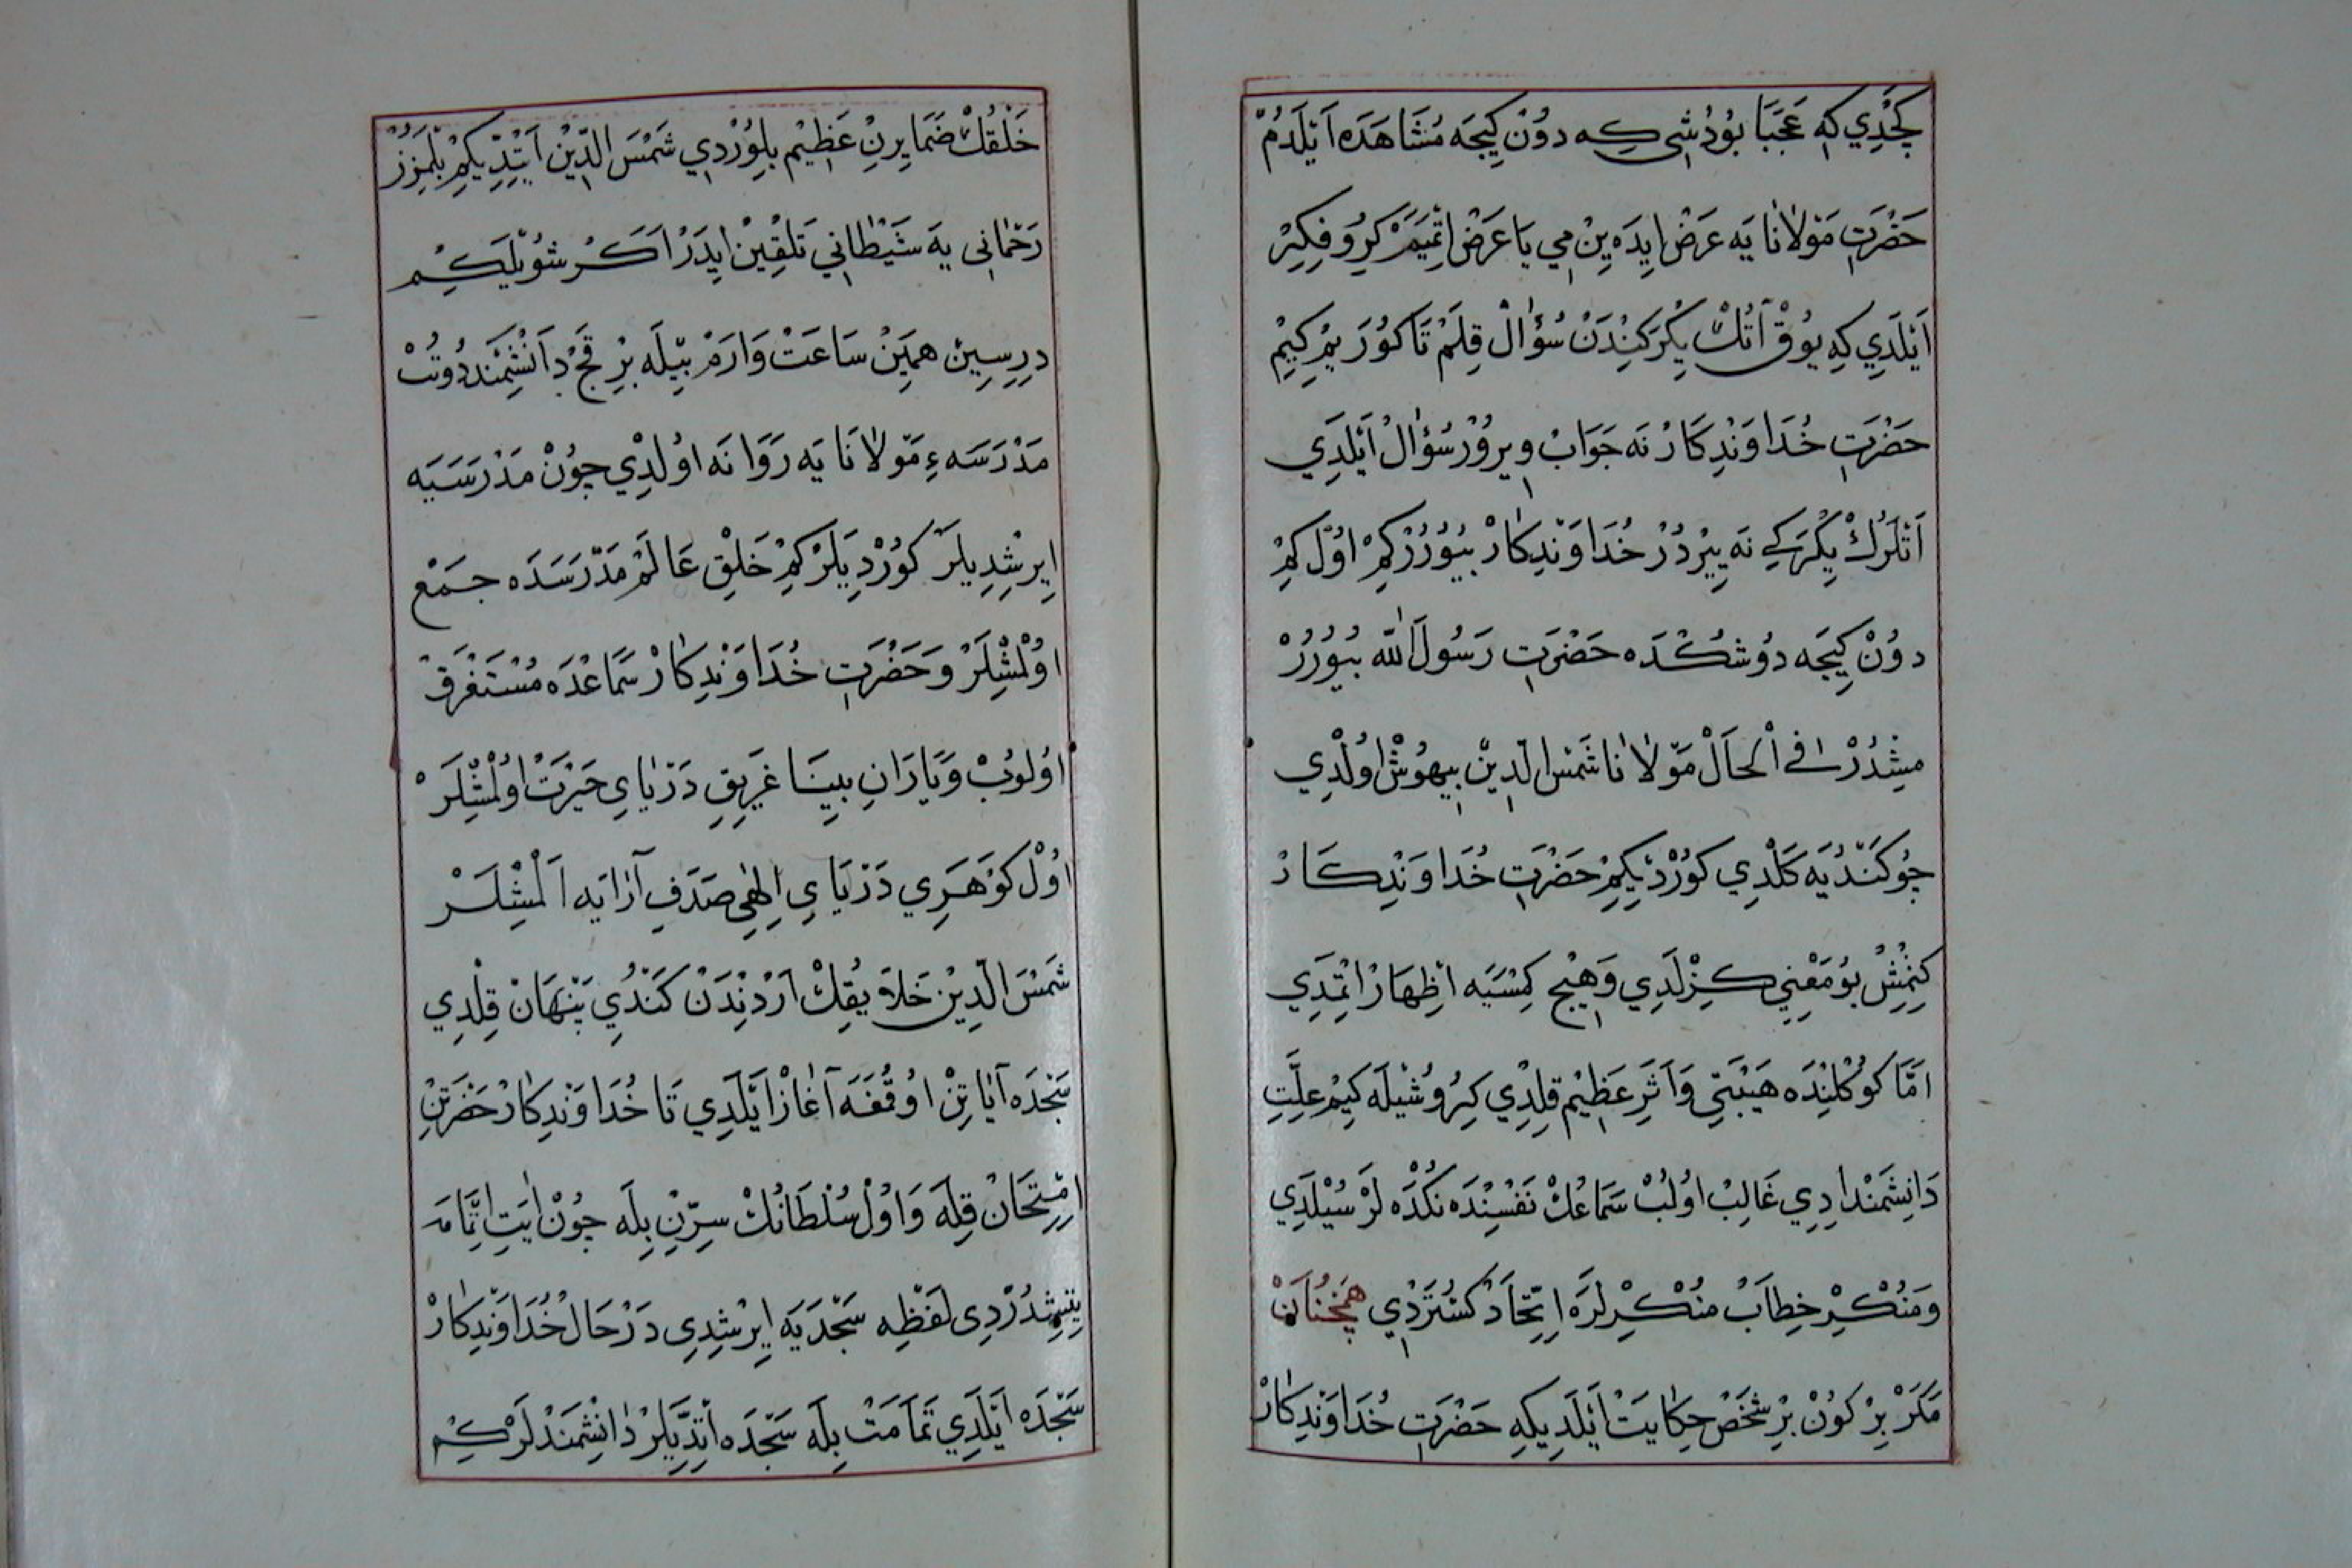 كَچْدِي كِه عَجَبَا بُودُشِی كِه دُونْ كِيجَه مُشَاهَدَه اَيْلَدُمْ
حَضْرَتِ مَوْلَانَا يَه عَرَضْ ايِدَه يِنْ مِي يَا عَرَضْ اِتْمَيَمْ كِرُو فِكِرْ
اَيْلَدِي كِه يُوقْ آنُكْ يِكْرَكِنْدَنْ سُؤَالْ قِلَمْ تَا كُورَيِمْ كِيمْ
حَضْرَتِ خُدَاوَنْدِكَارْ نَه جَوَابْ ويِرُورْ سُؤَالْ اَيْلَدِي
اَنْلَرُكْ يِكْرَكِي نَه يِيرْدُرْ خُدَاوَنْدِكَارْ بُيُورُرْكِمْ اوُلْ كِمْ
دُونْ كِيجَه دُوشُكْدَه حَضْرَتِ رَسُولَ اللّٰه بُيُورُرْ
مِشِدُرْ فِي الْحَالْ مَوْلَانَا شَمْسَ الدِّينْ بِيهُوشْ اوُلْدِي
چُو كَنْدُيَه كَلْدِي كُورْدِيكِمْ حَضْرَتِ خُدَاوَنْدِكَارْ
كِزْمِشْ بُو مَعْنِي كِزْلَدِي وَهِيچْ كِمْسَيَه اِظْهَارْ اِتْمَدِي
اَمَّا كُوكْلِنْدَه هَيْبَتِي وَاَثَرِ عَظِيمْ قِلْدِي كِرُو شُيْلَه كِيمْ عِلَّتِ
دَانِشْمَنْدَادِي غَالِبْ اوُلُبْ سَمَاعُكْ نَفْسِنْدَه نُكْدَه لَرْ سُيْلَدِي
وَمُنْكِرْ خِطَابْ مُنْكِرْلَرَه اِتِّحَادْ كُسْتَرْدِي هَمْچُنَانْ
مَكَرْ بِرْ كُونْ بِرْ شَخْصْ حِكَايَتْ اَيْلَدِيكِه حَضْرَتِ خُدَاوَنْدِكَارْ
خَلْقُكْ ضَمَايِرِنْ عَظِيمْ بِلُورْدِي شَمْسَ الدِّينْ اَيْتِدِيكِمْ بِلْمَزُزْ
رَحْمَانِی يَه شَيْطَانِي تَلْقِينْ ايِدَرْ اَكَرْ شُوْيلَكِمْ
دِرِسِينْ هَمِينْ سَاعَتْ وَارَمْ بِيلَه بِرْ قَچْ دَانِشْمَنْد دُوتُبْ
مَدْرَسَه ءِ مَوْلَانَا يَه رَوَانَه اوُلْدِي چُونْ مَدْرَسَيَه
اِيرِشْدِيلَرْ كُورْدِيلَرْ كِمْ خَلْقِ عَالَمْ مَدْرَسَدَه جَمْعْ
اوُلْمِشْلَرْ وَحَضْرَتِ خُدَاوَنْدِكَارْ سَمَاعْدَه مُسْتَغْرَقْ
اوُلُوبْ وَيَارَانِ بِينَا غَرِيقِ دَرْيَايِ حَيْرَتْ اوُلْمِشْلَرْ
اوُلْ كَوْهَرِي دَرْيَايِ اِلٰهِي صَدَفِ آرَايَه اَلْمِشْلَرْ
شَمْسَ الدِّينْ خَلَايِقِكْ آرْدِنْدَنْ كَنْدُيِ پِنْهَانْ قِلْدِي
سَجْدَه آيَاتِنْ اوُقُمَغَه آغَازْ اَيْلَدِي تَا خُدَاوَنْدِكَارْ حَضْرَتِنْ
اِمْتِحَانْ قِلَه وَاوُلْ سُلْطَانُكْ سِرِّنْ بِلَه چُونْ اٰيَتِ اِتْمَامَه
يِتِشْمِشْدُرْدِی لَفْظِه سَجْدَيَه اِيرِشْدِی دَرْحَالْ خُدَاوَنْدِكَارْ
سَجْدَه اَيْلَدِي تَمَامَتْ بِلَه سَجْدَه اَيْتِدِيلَرْ دَانِشْمَنْدْلَرْكِمْ